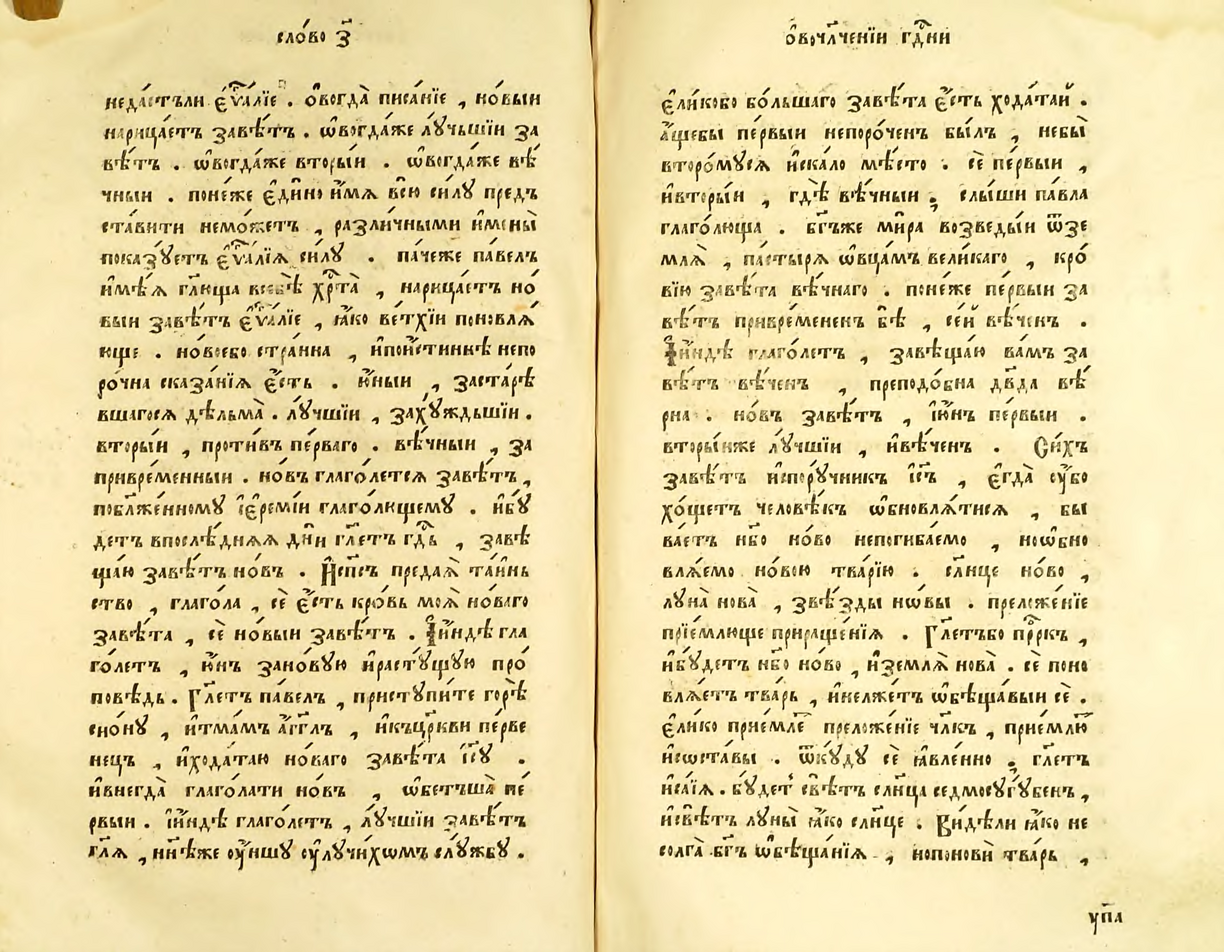 сло́во з҃
недаⷭ҇тъли є҆ѵⷢ҇а́лїе . ѻ҆вогда̀ писа́нїе , но́выи
нарица́етъ завѣ́тъ . ѡ҆вогда́же лꙋ́чьшїи за
вѣ́тъ . ѡ҆вогда́же вторы́и . ѡ҆вогда́же вѣ́
чныи . поне́же є҆ди́но и҆́мѧ всю̀ си́лꙋ предъ
ста́вити немо́жетъ , разли́чными и҆мены̀
показꙋ́етъ є҆ѵⷢ҇а́лїѧ си́лꙋ . па́чеже па́велъ
и҆мѣ́ѧ гл҃юща всебѣ̀ хрⷭ҇та̀ , нарица́етъ но́
выи завѣ́тъ є҆ѵⷢ҇а́лїе , ꙗ҆́ко ве́тхїи поновлѧ́
юще . но́воебо стра́нна , и҆пои́стиннѣ непо
ро́чна сказа́нїѧ є҆́сть . ю҆́ныи , застарѣ́
вшагосѧ дѣ́льма . лꙋ́чшїи , захꙋ́ждьшїи .
вторы́и , проти́въ пе́рваго . вѣ́чныи , за
привре́менныи . но́въ глаго́летсѧ завѣ́тъ ,
побл҃же́нномꙋ і҆єремі́и глаго́лющемꙋ . и҆бꙋ́
детъ впослѣ́днѧѧ дн҃и гл҃етъ гдⷭ҇ь , завѣ
ща́ю завѣ́тъ но́въ . И҆сп҃съ преда́ѧ та́инь
ство , глаго́ла , сѐ є҆́сть кро́вь моѧ̀ но́ваго
завѣ́та , сѐ но́выи завѣ́тъ . І҆и҆ндѣ̀ гла
го́летъ , ю҆́нъ зано́вꙋю и҆растꙋ́щꙋю про́
повѣдь . Гл҃етъ па́велъ , пристꙋпи́те горѣ̀
сио́нꙋ , и҆тма́мъ а҆́гг҃лъ , и҆къцр҃кви пе́рве
нецъ , и҆хода́таю но́ваго завѣ́та і҆с҃ꙋ .
и҆внегда̀ глаго́лати но́въ , ѡ҆бетъша̀ пе́
рвыи . і҆и҆ндѣ̀ глаго́летъ , лꙋ́чшїи завѣ́тъ
гл҃ѧ , нн҃ѣже ѹ҆́ншꙋ ѹ҆лꙋчи́хѡмъ слꙋ́жбꙋ .
ѻ҆вочл҃че́нїи гдⷭ҇ни
є҆ли́кобо бо́льшаго завѣ́та є҆́сть хода́таи .
а҆́щебы пе́рвыи непоро́ченъ бы́лъ , небы̀
второ́мꙋсѧ и҆ска́ло мѣ́сто . сѐ пе́рвыи ,
и҆вторы́и , гдѣ̀ вѣ́чныи ; слы́ши па́вла
глаго́люща . бг҃ъже ми́ра возведы́и ѿзе
млѧ̀ , па́стырѧ ѡ҆вца́мъ вели́каго , кро́
вїю завѣ́та вѣ́чнаго . поне́же пе́рвыи за
вѣ́тъ привре́мененъ бѣ̀ , се́й вѣ́ченъ .
І҆и҆ндѣ̀ глаго́летъ , завѣща́ю ва́мъ за
вѣ́тъ вѣ́ченъ , преподо́бна дв҃да вѣ́
рна . но́въ завѣ́тъ , і҆ю҆́нъ пе́рвыи .
вторы́иже лꙋ́чшїи , и҆вѣ́ченъ . Си́хъ
завѣ́тъ и҆спорꙋ́чникъ і҆с҃ъ , є҆гда̀ ѹ҆́бо
хо́щетъ человѣ́къ ѡ҆бновлѧ́тисѧ , бы
ва́етъ нб҃о но́во непогиба́емо , ноѡ҆бно
влѧ́емо но́вою тва́рїю . сл҃нце но́во ,
лꙋна̀ нова̀ , ѕвѣ́зды нѡ́вы . преложе́нїе
прїе́млюще прираще́нїѧ . Гл҃етъбо прⷪ҇ркъ ,
и҆бꙋ́детъ нб҃о но́во , и҆землѧ̀ нова̀ . сѐ поно
влѧ́етъ тва́рь , и҆нелже́тъ ѡ҆бѣща́выи сѐ .
є҆ли́ко прие́млеⷮ преложе́нїе чл҃къ , прие́млюⷮ
и҆соста́вы . ѿкꙋ́дꙋ сѐ ꙗ҆вле́нно ; гл҃етъ
и҆са́їѧ . бꙋ́детъ свѣ́тъ сл҃нца седмосꙋгꙋ́бенъ ,
и҆свѣ́тъ лꙋны̀ ꙗ҆́ко сл҃нце . Ви́дѣли ꙗ҆́ко не
солга̀ бг҃ъ ѡ҆бѣща́нїѧ , нопоновѝ тва́рь ,
уп҃а